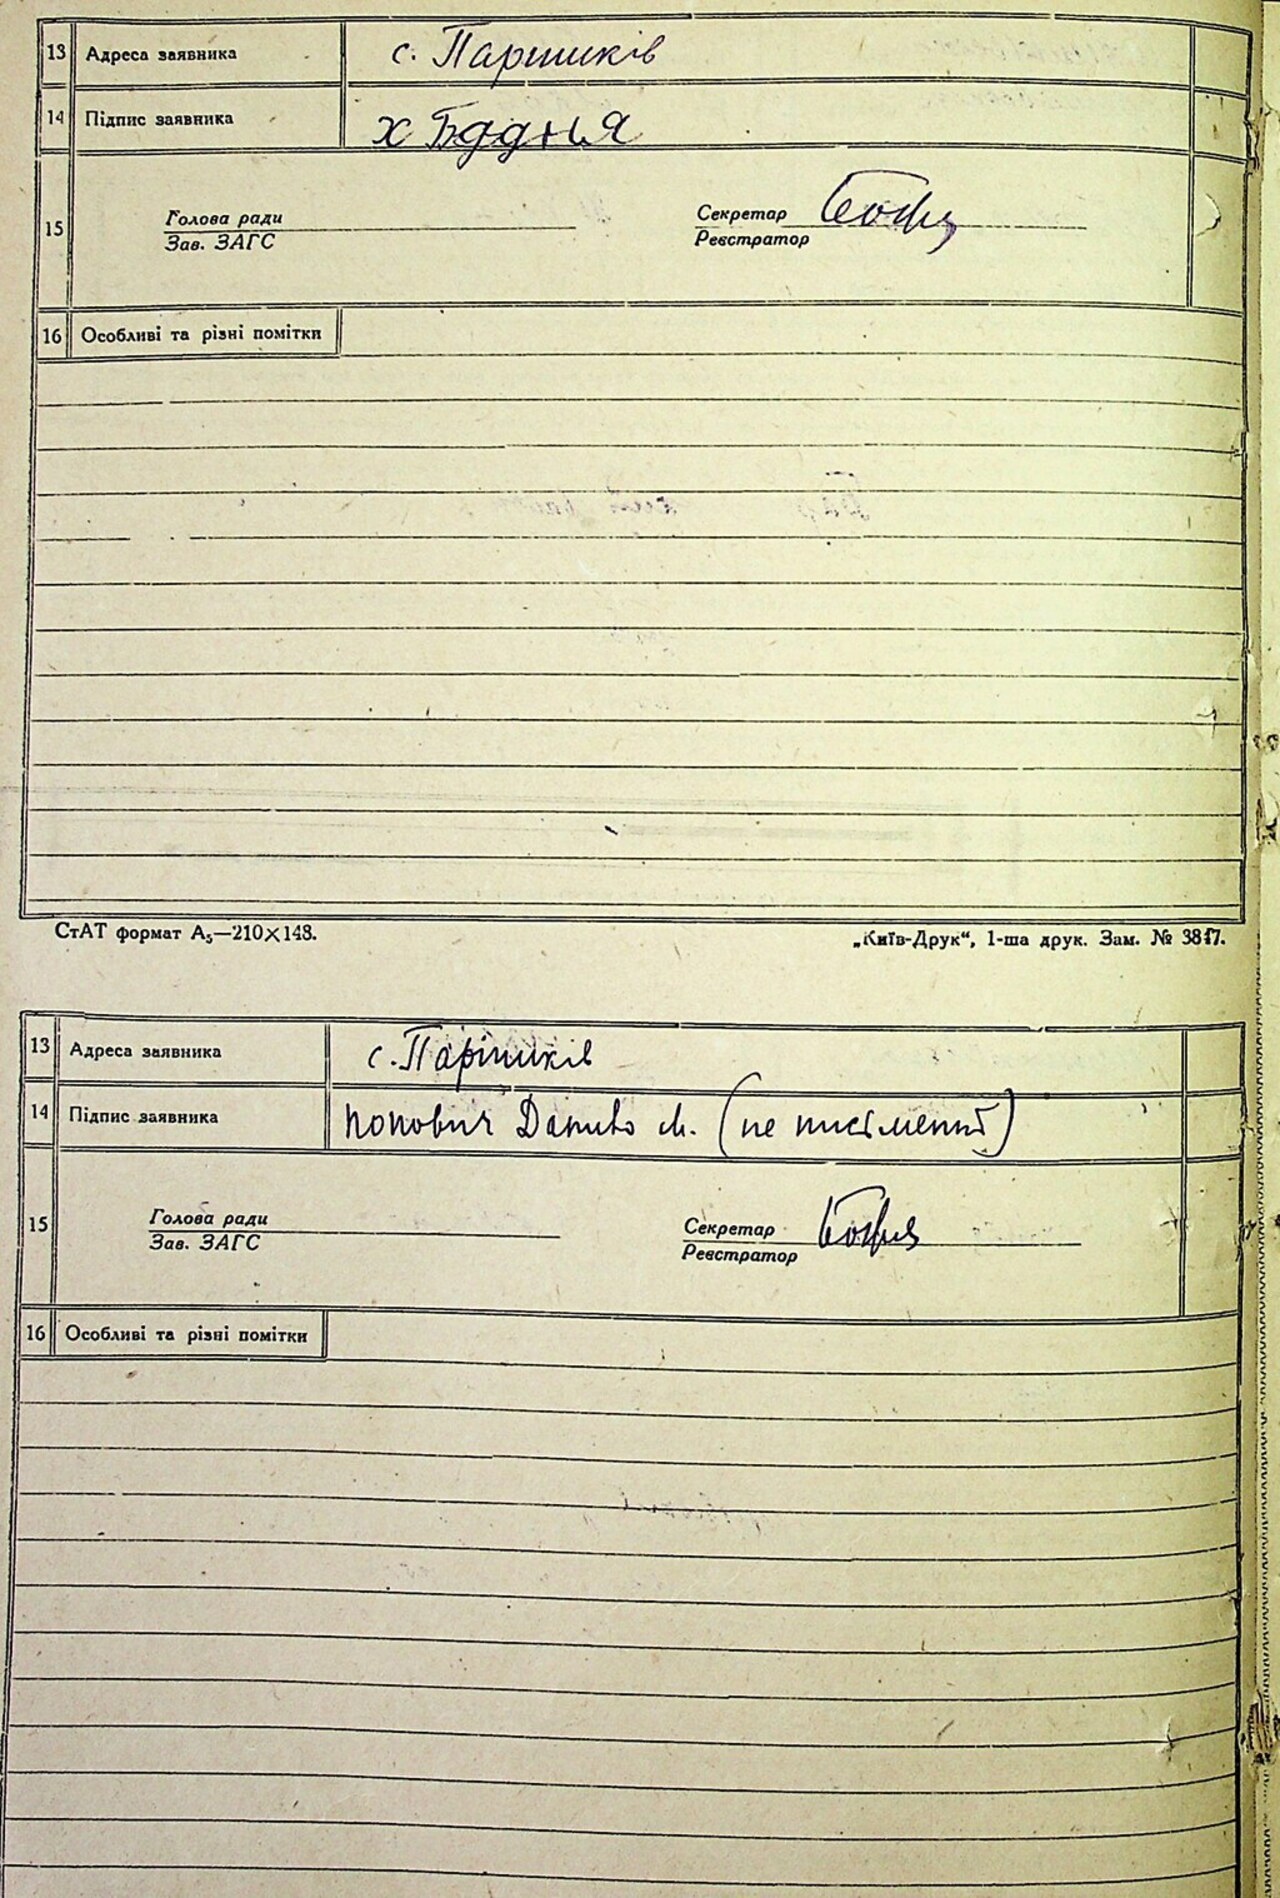 13 Адреса заявника с. Паришків
14 Підпис заявника х Бддня
15 Голова ради Секретар
Зав. ЗАГС Реєстратор
16 Особливі та різні помітки
СтАТ формат А₅—210×148. „Київ-Друк“, 1-ша друк. Зам. № 3817.
13 Адреса заявника с. Паришків
14 Підпис заявника Попович Данило М. (не письмений)
15 Голова ради Секретар
Зав. ЗАГС Реєстратор
16 Особливі та різні помітки